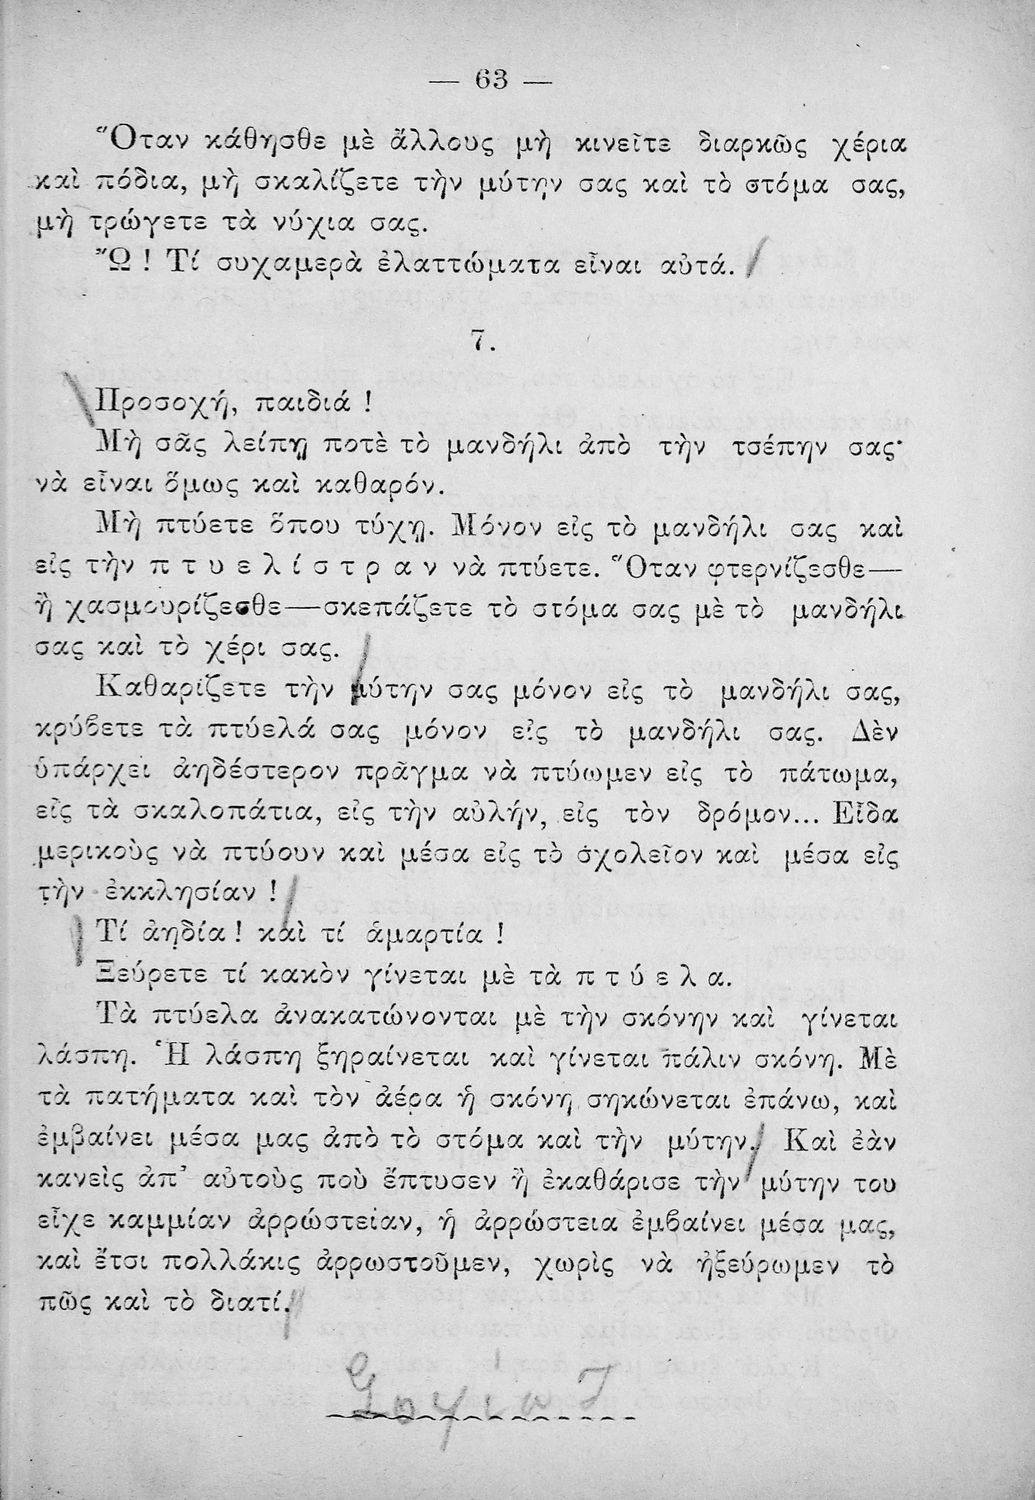 — 63 —
Ὅταν κάθησθε μὲ ἄλλους μὴ κινεῖτε διαρκῶς χέρια
καὶ πόδια, μὴ σκαλίζετε τὴν μύτην σας καὶ τὸ στόμα σας,
μὴ τρώγετε τὰ νύχια σας.
Ὤ! Τί συχαμερὰ ἐλαττώματα εἶναι αὐτά.
7.
Προσοχή, παιδιά!
Μὴ σᾶς λείπῃ ποτὲ τὸ μανδήλι ἀπὸ τὴν τσέπην σας·
νὰ εἶναι ὅμως καὶ καθαρόν.
Μὴ πτύετε ὅπου τύχῃ. Μόνον εἰς τὸ μανδήλι σας καὶ
εἰς τὴν πτυελίστραν νὰ πτύετε. Ὅταν φτερνίζεσθε—
ἢ χασμουρίζεσθε—σκεπάζετε τὸ στόμα σας μὲ τὸ μανδήλι
σας καὶ τὸ χέρι σας.
Καθαρίζετε τὴν μύτην σας μόνον εἰς τὸ μανδήλι σας,
κρύβετε τὰ πτύελά σας μόνον εἰς τὸ μανδήλι σας. Δὲν
ὑπάρχει ἀηδέστερον πρᾶγμα νὰ πτύωμεν εἰς τὸ πάτωμα,
εἰς τὰ σκαλοπάτια, εἰς τὴν αὐλήν, εἰς τὸν δρόμον... Εἶδα
μερικοὺς νὰ πτύουν καὶ μέσα εἰς τὸ σχολεῖον καὶ μέσα εἰς
τὴν ἐκκλησίαν!
Τί ἀηδία! καὶ τί ἁμαρτία!
Ξεύρετε τί κακὸν γίνεται μὲ τὰ πτύελα.
Τὰ πτύελα ἀνακατώνονται μὲ τὴν σκόνην καὶ γίνεται
λάσπη. Ἡ λάσπη ξηραίνεται καὶ γίνεται πάλιν σκόνη. Μὲ
τὰ πατήματα καὶ τὸν ἀέρα ἡ σκόνη σηκώνεται ἐπάνω, καὶ
ἐμβαίνει μέσα μας ἀπὸ τὸ στόμα καὶ τὴν μύτην. Καὶ ἐὰν
κανεὶς ἀπ' αὐτοὺς ποὺ ἔπτυσεν ἢ ἐκαθάρισε τὴν μύτην του
εἶχε καμμίαν ἀρρώστειαν, ἡ ἀρρώστεια ἐμβαίνει μέσα μας,
καὶ ἔτσι πολλάκις ἀρρωστοῦμεν, χωρὶς νὰ ἠξεύρωμεν τὸ
πῶς καὶ τὸ διατί.